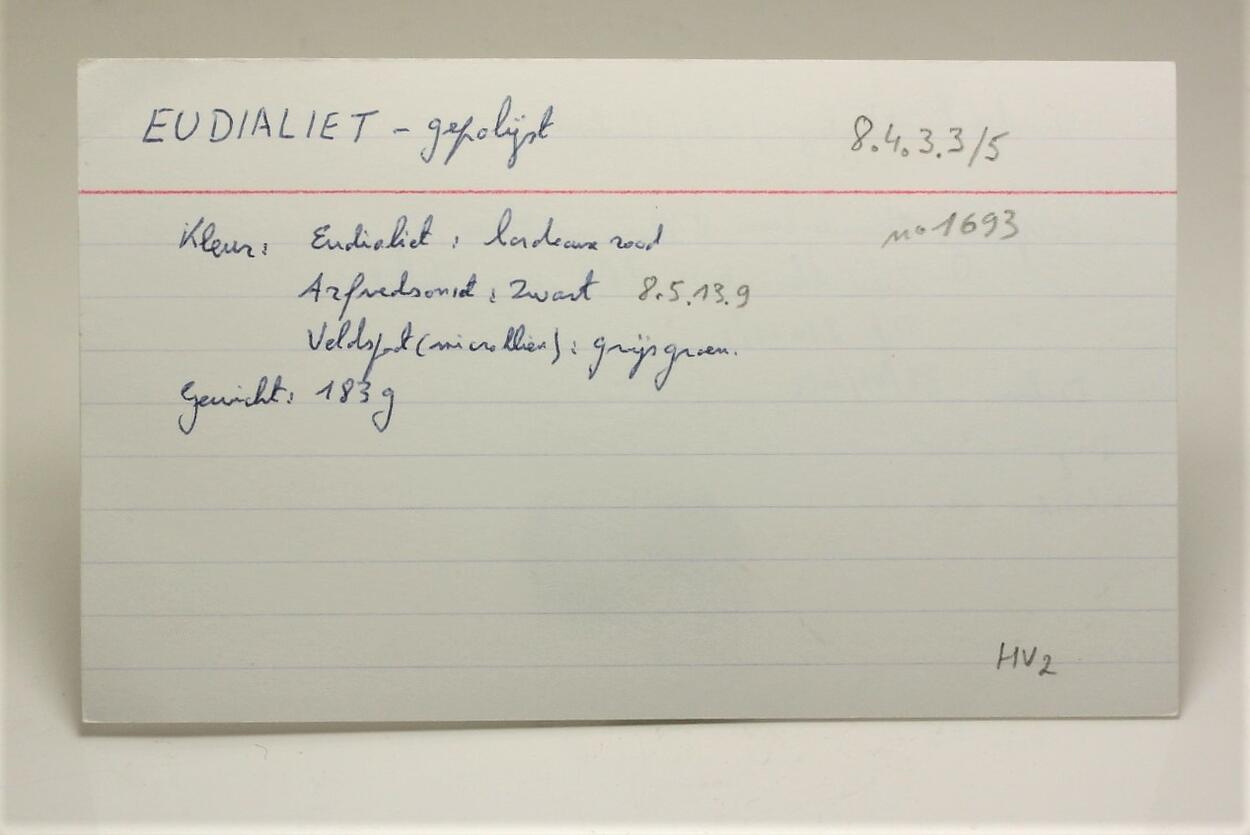 EUDIALIET - gepolijst 8.4.3.3/5
Kleur: Eudialiet : bordeaux rood no 1693
Arfvedsoniet : Zwart 8.5.13.9
Veldspat (microklien) : grijsgroen.
Gewicht: 183 g
HV2